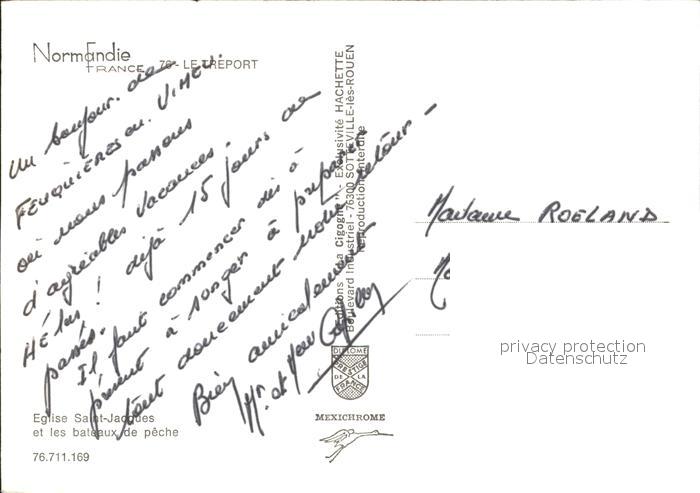 Normandie
FRANCE 76 - LE TRÉPORT
Un bonjour de
FEUQUIÈRES en VIMEU.
où nous passons
d'agréables vacances.
Hélas! déjà 15 jours de
passés.
Il faut commencer dès à
présent à songer à préparer
tout doucement notre retour -
Bien amicalement
Mr. et Mme
Madame ROELAND
privacy protection
Datenschutz
Editions "La Cigogne" - Exclusivité HACHETTE
Boulevard Industriel - 76300 SOTTEVILLE-lès-ROUEN
Reproduction interdite
DIPLOME
PRESTIGE
DE LA
FRANCE
MEXICHROME
Eglise Saint-Jacques
et les bateaux de pêche
76.711.169